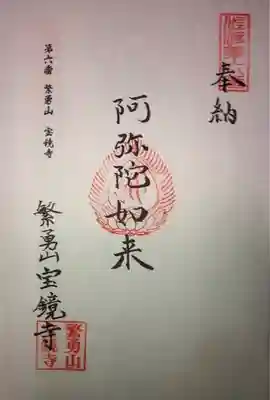 奉納
阿弥陀如来
第六番 繁勇山 宝鏡寺
繁勇山宝鏡寺
繁勇山